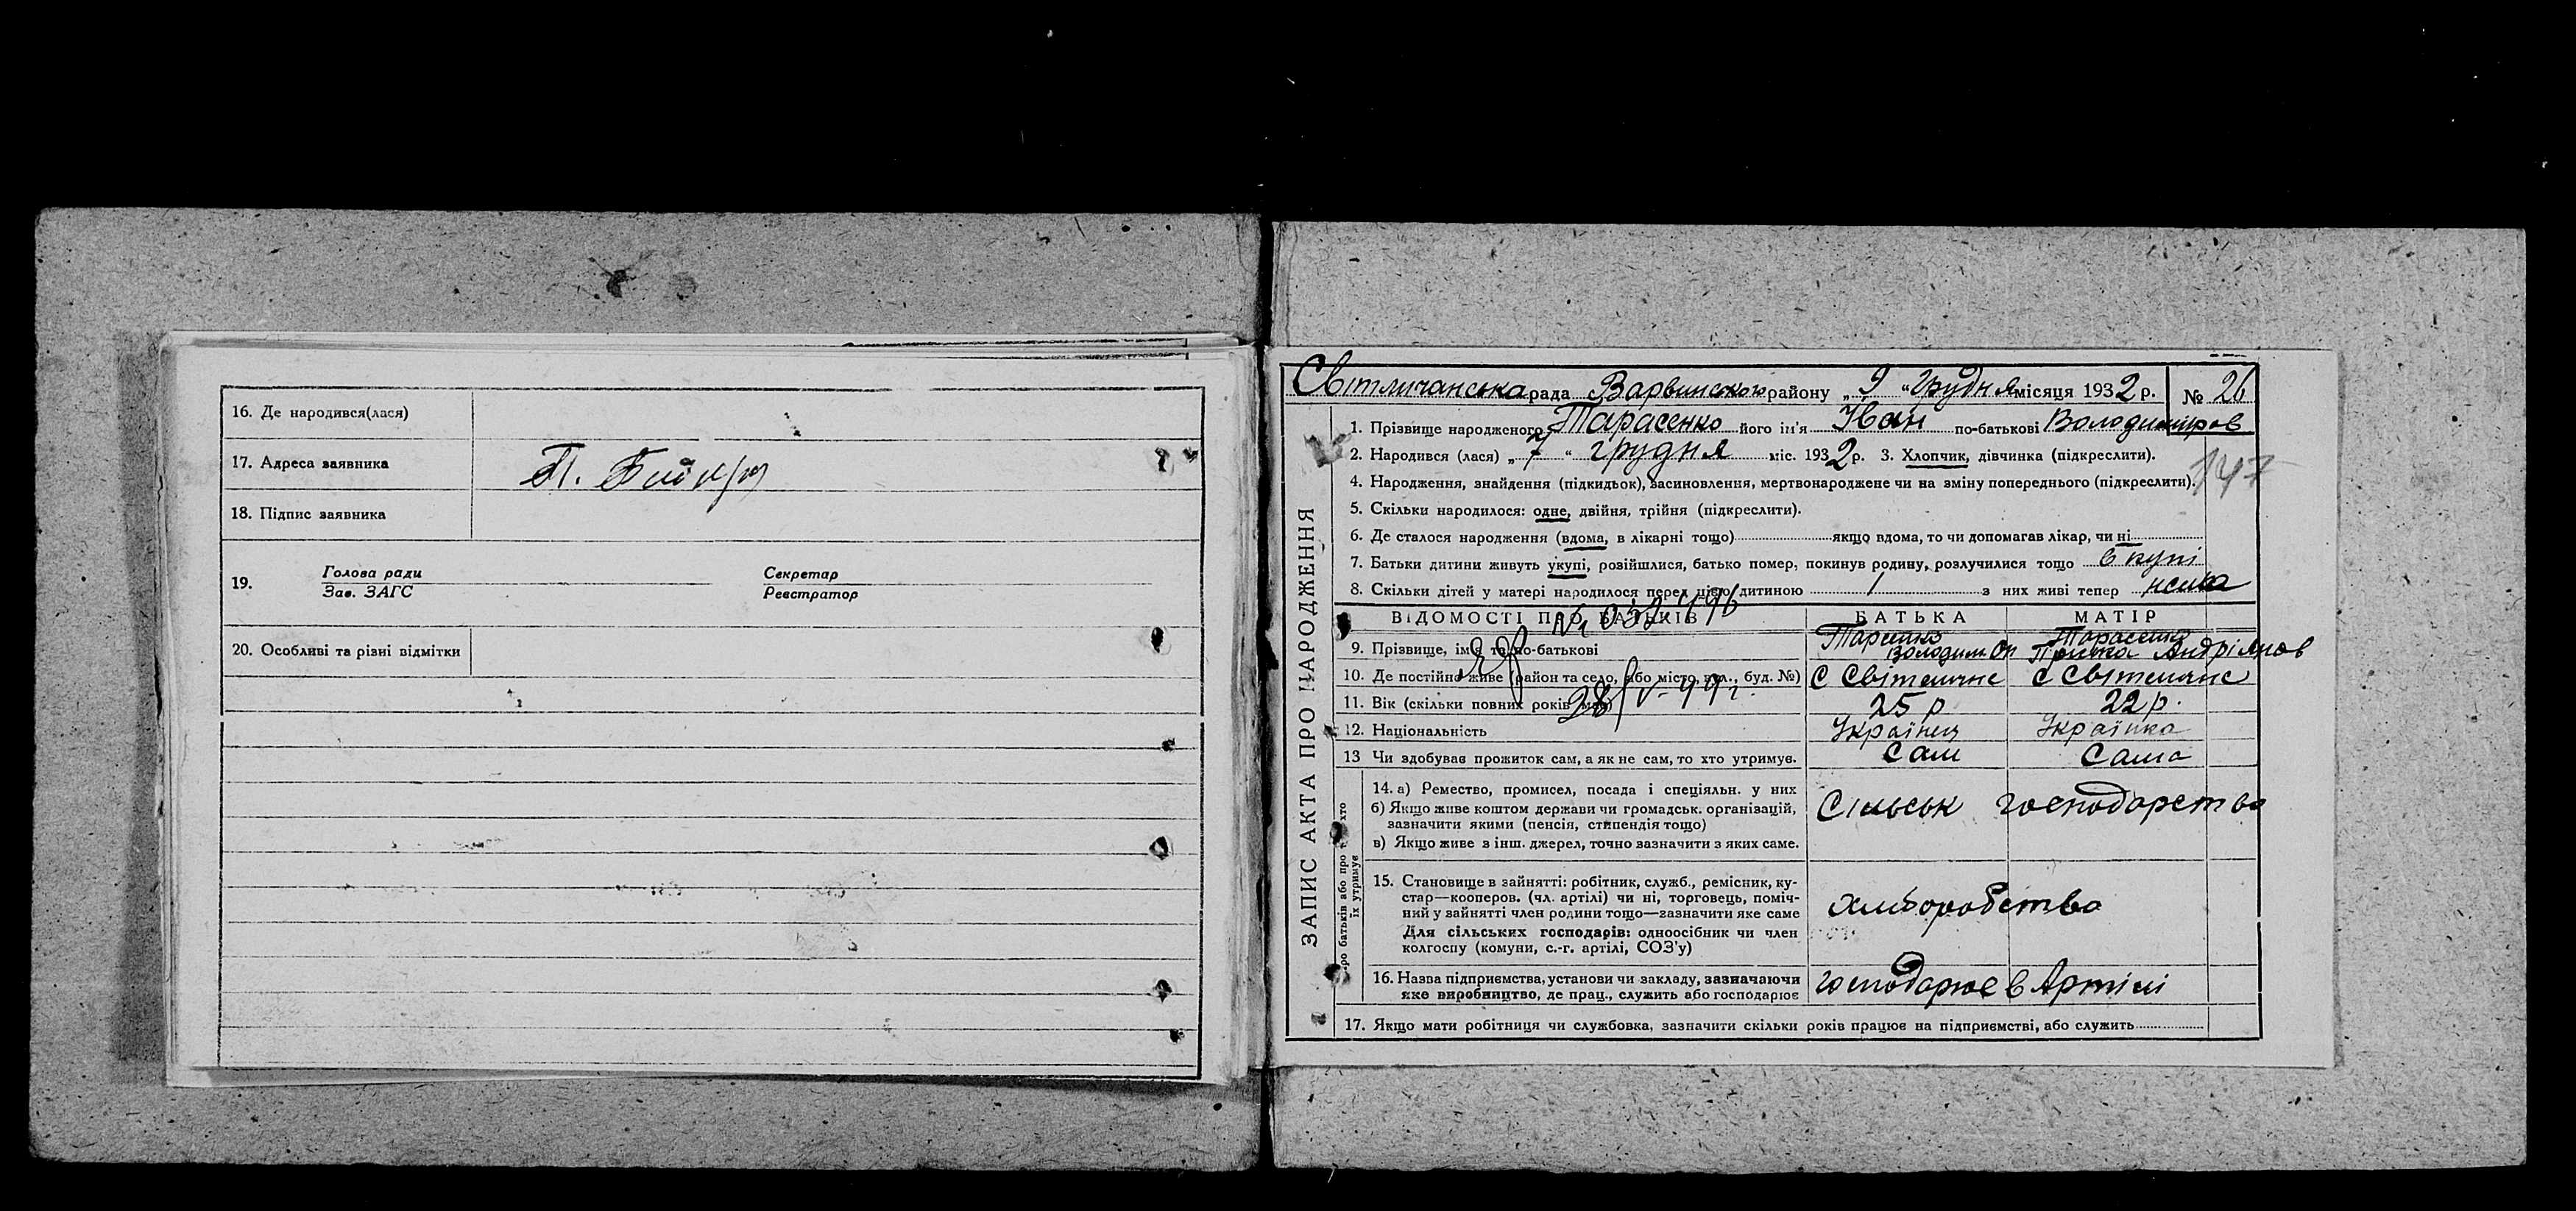 16. Де народився(лася)
17. Адреса заявника
П.
18. Підпис заявника
19. Голова ради Секретар
Зав. ЗАГС Реєстратор
20. Особливі та різні відмітки
Світличанська рада Варвинского району „ 9 “ грудня місяця 1932 р. № 26
ЗАПИС АКТА ПРО НАРОДЖЕННЯ
1. Прізвище народженого Тарасенко його ім'я Іван по-батькові Володимиров
2. Народився (лася) „ 7 “ грудня міс. 1932р. 3. Хлопчик, дівчинка (підкреслити).
147
4. Народження, знайдення (підкидьок), засиновлення, мертвонароджене чи на зміну попереднього (підкреслити).
5. Скільки народилося: одне, двійня, трійня (підкреслити).
6. Де сталося народження (вдома, в лікарні тощо) якщо вдома, то чи допомагав лікар, чи ні
7. Батьки дитини живуть укупі, розійшлися, батько помер, покинув родину, розлучилися тощо в купі
8. Скільки дітей у матері народилося перед цією дитиною 1 з них живі тепер нема
ВІДОМОСТІ ПРО БАТЬКІВ БАТЬКА МАТІР
№ 032496
9. Прізвище, ім'я та по-батькові Тарасенко Володим Тарасенко Андріянов
10. Де постійно живе (район та село, або місто, вул., буд. №) С Світличне С Світличне
28/V-49г.
11. Вік (скільки повних років мав) 25 р 22 р.
12. Національність Українец Українка
13 Чи здобуває прожиток сам, а як не сам, то хто утримує. Сам Сама
про батьків або про тих, хто
їх утримує
14. а) Ремество, промисел, посада і спеціяльн. у них
б) Якщо живе коштом держави чи громадськ. організацій,
зазначити якими (пенсія, стипендія тощо)
в) Якщо живе з інш. джерел, точно зазначити з яких саме.
Сільськ господарство
15. Становище в зайнятті: робітник, служб., ремісник, ку-
стар—кооперов. (чл. артілі) чи ні, торговець, поміч-
ний у зайнятті член родини тощо—зазначити яке саме
Для сільських господарів: одноосібник чи член
колгоспу (комуни, с.-г. артілі, СОЗ'у)
хліборобство
16. Назва підприємства, установи чи закладу, зазначаючи
яке виробництво, де прац., служить або господарює
господарює в Артілі
17. Якщо мати робітниця чи службовка, зазначити скільки років працює на підприємстві, або служить